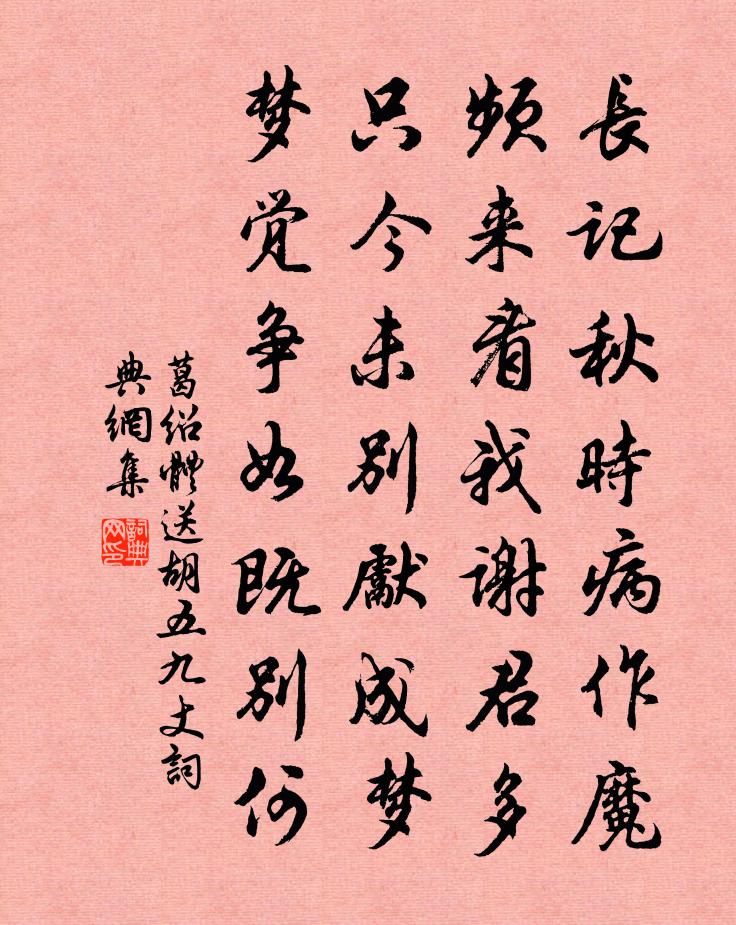 長记秋時病作魔
频来看我谢君多
只今未别獻成梦
梦觉争如既别何
葛绍體送胡五九丈詞
典網集
詞典
网印